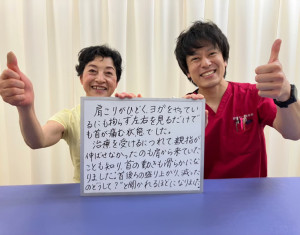 肩こりがひどくヨガをやってい
るにも拘らず左右を見るだけで
も首が痛む状態でした。
治療を受けるにつれて親指が
伸ばせなかったのも肩から来ていた
ことも知り、首の動きも滑らかにな
りました。首後らの盛り上がり、減った
のどうして？"と聞かれるほどになりました。